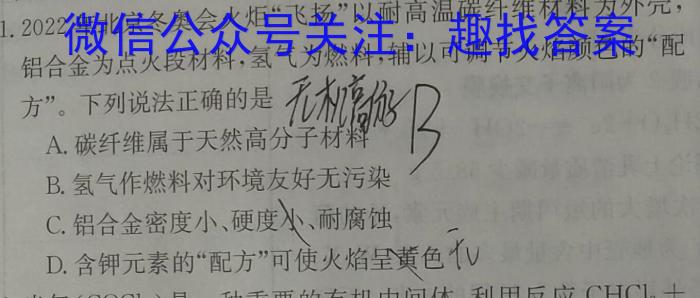 1.2022年北京冬奥会火炬“飞扬”以耐高温碳纤维材料为外壳,
微信公众号关注：趣找答案
铝合金为点火段材料,氢气为燃料,辅以可调节火焰颜色的“配
方”。下列说法正确的是 无机高分子 B
A. 碳纤维属于天然高分子材料
B. 氢气作燃料对环境友好无污染
C. 铝合金密度小、硬度小、耐腐蚀
D. 含钾元素的“配方”可使火焰呈黄色
是一种重要的有机中间体,利用反应 CHCl₃+